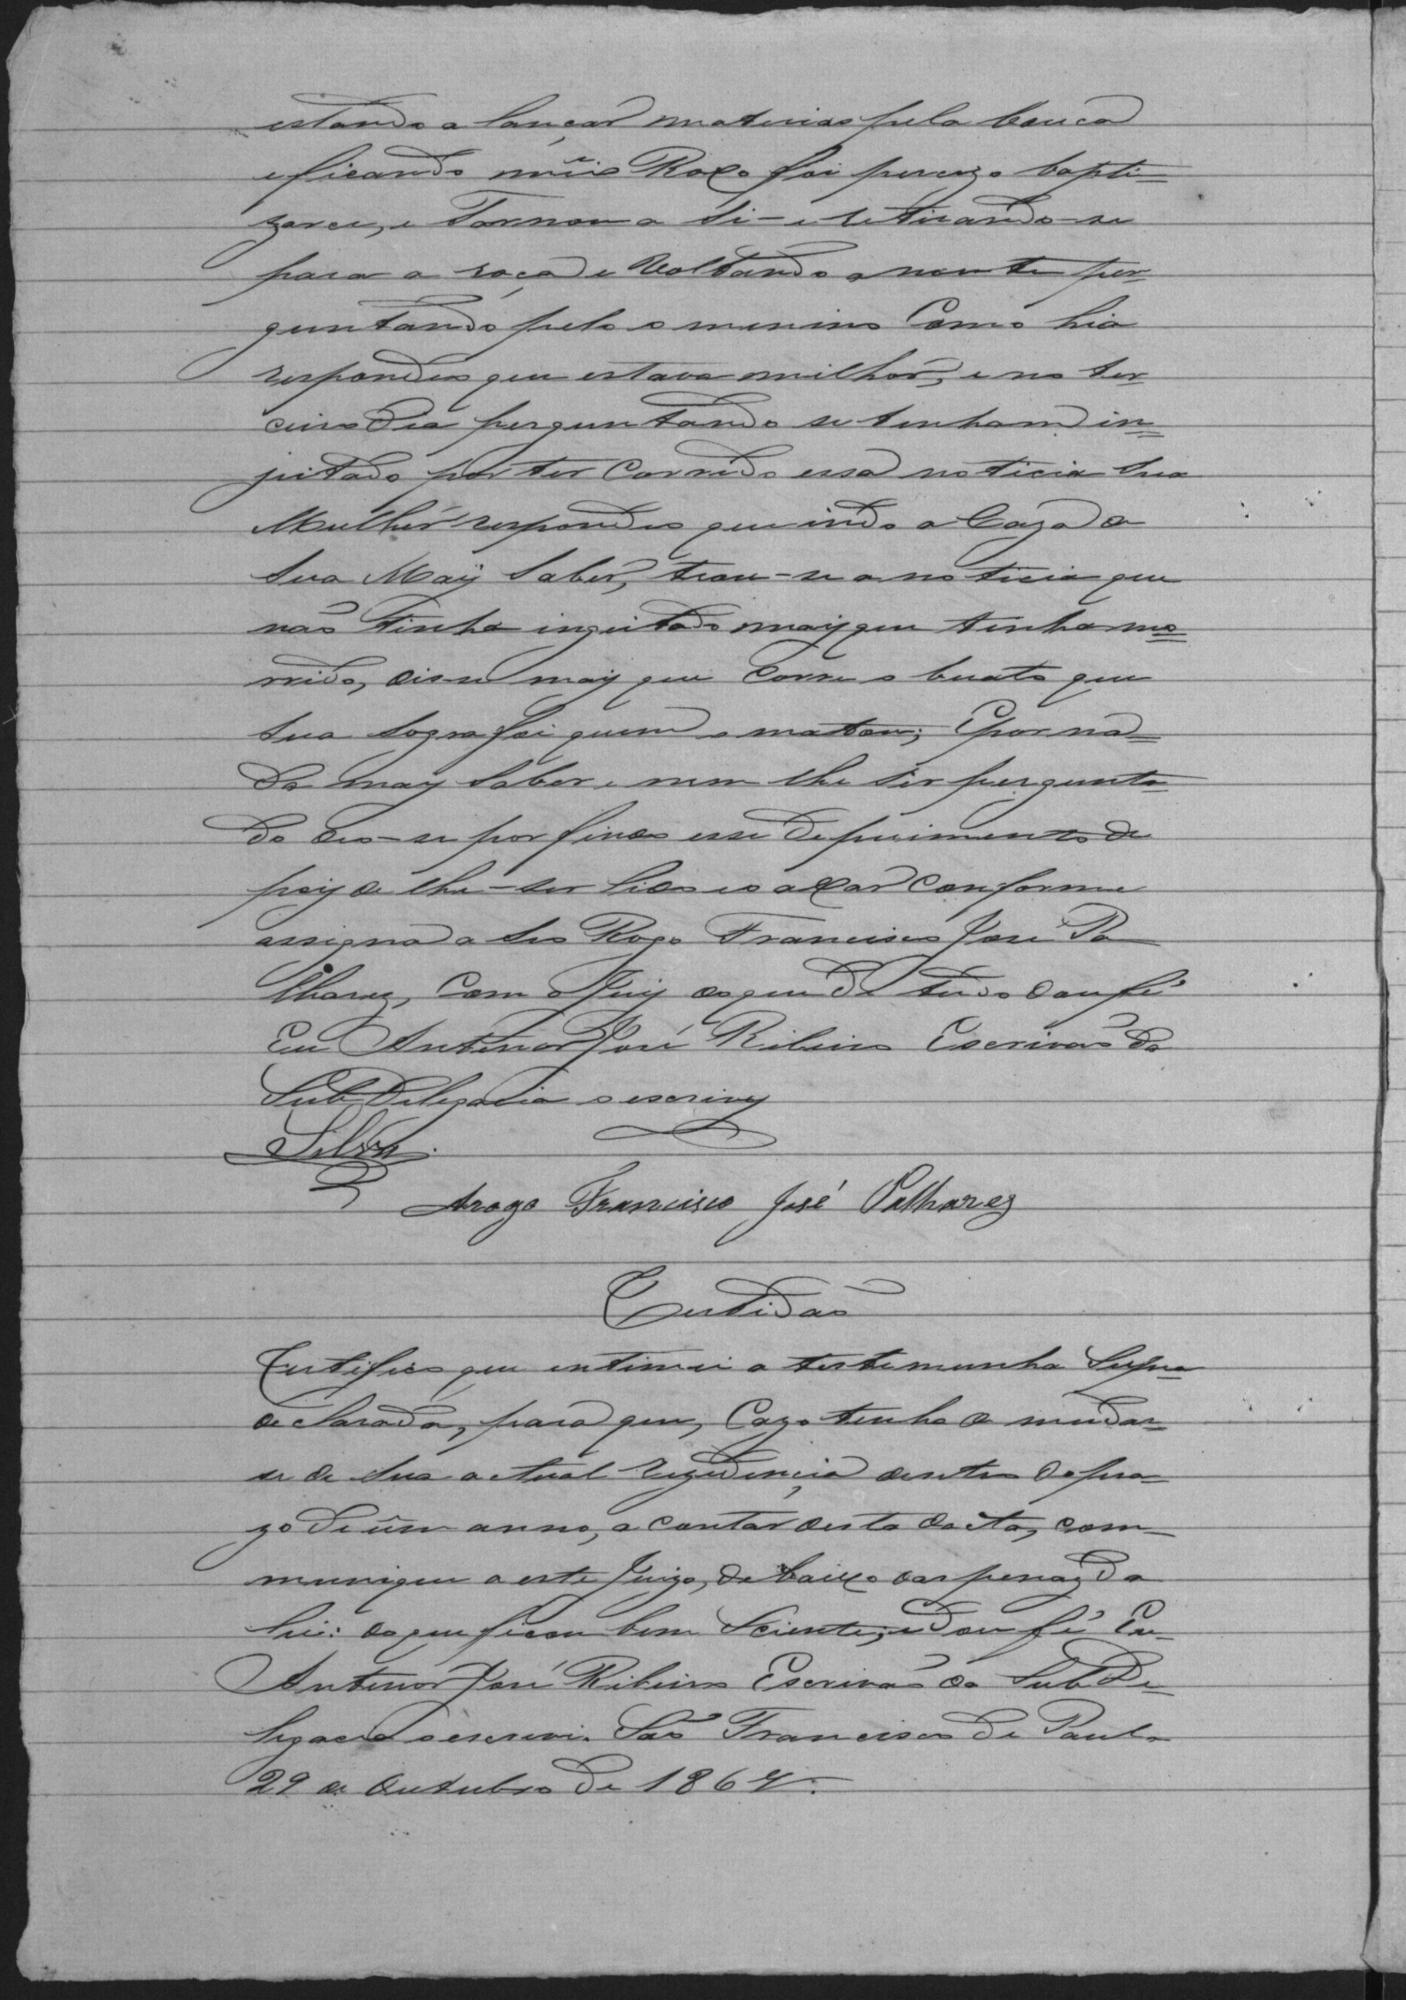 estando a lançar materias pela bouca
e ficando muis Roxo foi percizo bapti=
zarce, e Tornou a Si - e retirando-se
para a roça e Voltando a noute per-
guntando pelo o menino Como hia
respondeo que estava milhor, e no ter-
ceiro Dia perguntando se tinham in=
jeitado por ter Corrido essa noticia Sua
Mulhér respondeo que indo a Caza de
Sua May Saber, trou-se a noticia que
não Tinha ingeitado may que tinha mo=
rrido, disse may que Corre o buato que
Sua Sogra foi quem o matou; E por na=
da may Saber e nem lhe Sér pergunta-
do deo-se por findo esse depuimento de
poiz de lhe-ser lido e o axar conforme
assigna a Seo Rogo Francisco José Pa
lharez, Com o Juiz do que de tudo dou fé
Eu Antenor José Ribeiro Escrivão da
Sub Delegacia o escrivy
Silva.
Arogo Francisco José Palharez
Certidão
Certifico que intimei a testemunha Supra
declarada, para que, Cazo tenha de mudar=
se de Sua actual rezidencia dentro do pra-
zo de úm anno, a contar desta dacta, com-
munique a este Juizo, debaixo das penaz da
Lei: do que ficou bem Sciente; e dou fé Eu
Antenor José Ribeiro Escrivão da Sub De-
legacia o escrevi. São Francisco de Paula
29 de Outubro de 1867.